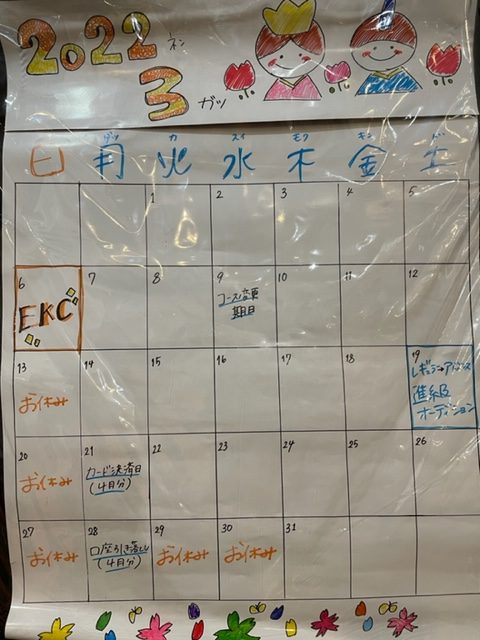 2022 ネン
3 ガツ
ゲツ カ スイ モク キン ド
日 月 火 水 木 金 土
1 2 3 4 5
6 7 8 9 10 11 12
EKC
コース変更
期日
13 14 15 16 17 18 19
お休み
進級
オーディション
20 21 22 23 24 25 26
お休み
カード決済日
(4月分)
27 28 29 30 31
お休み
口座引き落とし
(4月分)
お休み
お休み